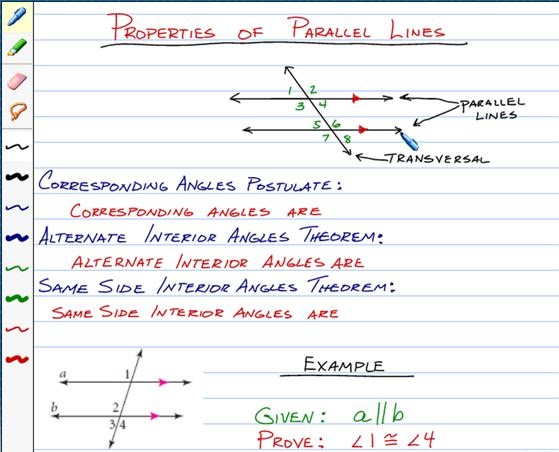 PROPERTIES OF PARALLEL LINES
1 2
3 4
5 6
7 8
PARALLEL
LINES
TRANSVERSAL
CORRESPONDING ANGLES POSTULATE:
CORRESPONDING ANGLES ARE
ALTERNATE INTERIOR ANGLES THEOREM:
ALTERNATE INTERIOR ANGLES ARE
SAME SIDE INTERIOR ANGLES THEOREM:
SAME SIDE INTERIOR ANGLES ARE
a
1
b
2
3 4
EXAMPLE
GIVEN: a||b
PROVE: ∠1 ≅ ∠4